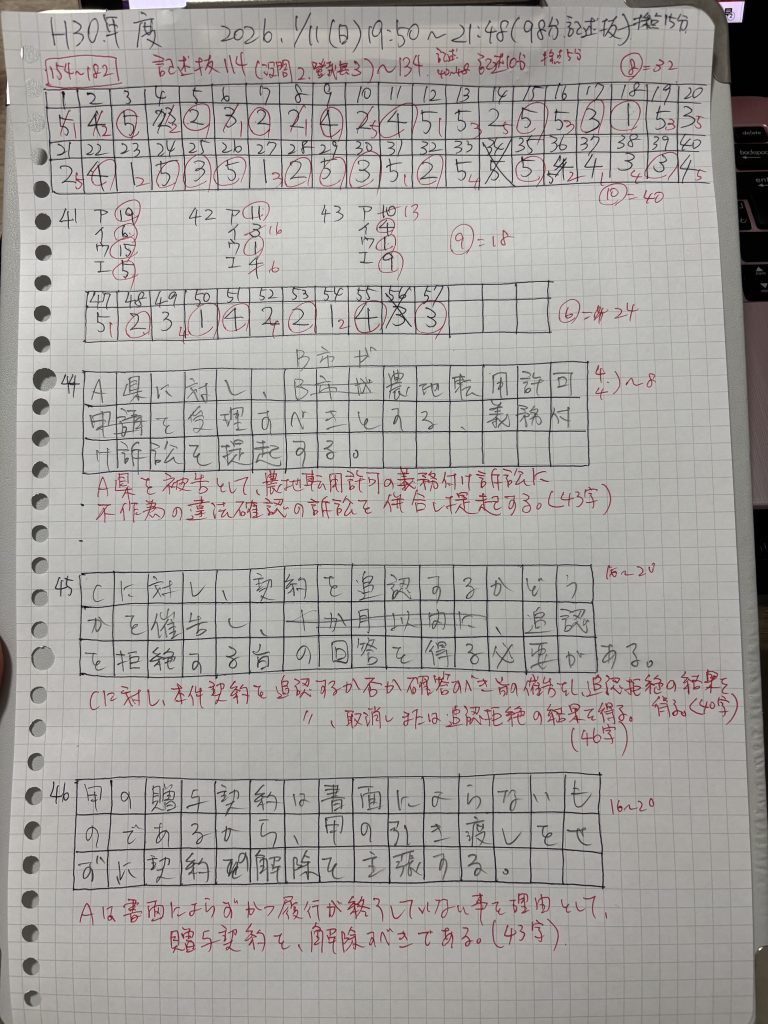 H30年度 2026.1/11(日)19:50～21:48(98分.記述抜)+検点15分
154～182 記述抜114 ～134 記述10分 検点5分
⑧=32
1 2 3 4 5 6 7 8 9 10 11 12 13 14 15 16 17 18 19 20
5 2 4 5 5 2 5 5 3 1 5 3
21 22 23 24 25 26 27 28 29 30 31 32 33 34 35 36 37 38 39 40
2 5 4 1 2 5 3 5 1 3 2 5 3 5 1 2 5 4 5 4 3 4 3 4 5
⑩=40
41 ア 19 42 ア 11 43 ア 10 13
イ 6 イ 3 16 イ 4
ウ 15 ウ 1 ウ 1
エ 5 エ 4 6 エ 9
⑨=18
47 48 49 50 51 52 53 54 55 56 57
5 1 2 3 4 1 4 2 4 2 1 2 4 3 3
⑥=24
B市が
44 A県に対し、B市が農地転用許可
申請を受理すべきとする、義務付
け訴訟を提起する。
4 4 ～8
A県を被告として、農地転用許可の義務付け訴訟に
不作為の違法確認の訴訟を併合し提起する。(43字)
45 Cに対し、契約を追認するかどう
かを催告し、一か月以内に、追認
を拒絶する旨の回答を得る必要がある。
16～20
Cに対し、本件契約を追認するか否か確答すべき旨の催告をし、追認拒絶の結果を
得る。(40字)
〃、取消しまたは追認拒絶の結果を得る。
(46字)
46 甲の贈与契約は書面によらないも
のであるから、甲の引き渡しをせ
ずに契約の解除を主張する。
16～20
Aは書面によらずかつ履行が終了していない事を理由として、
贈与契約を、解除すべきである。(43字)